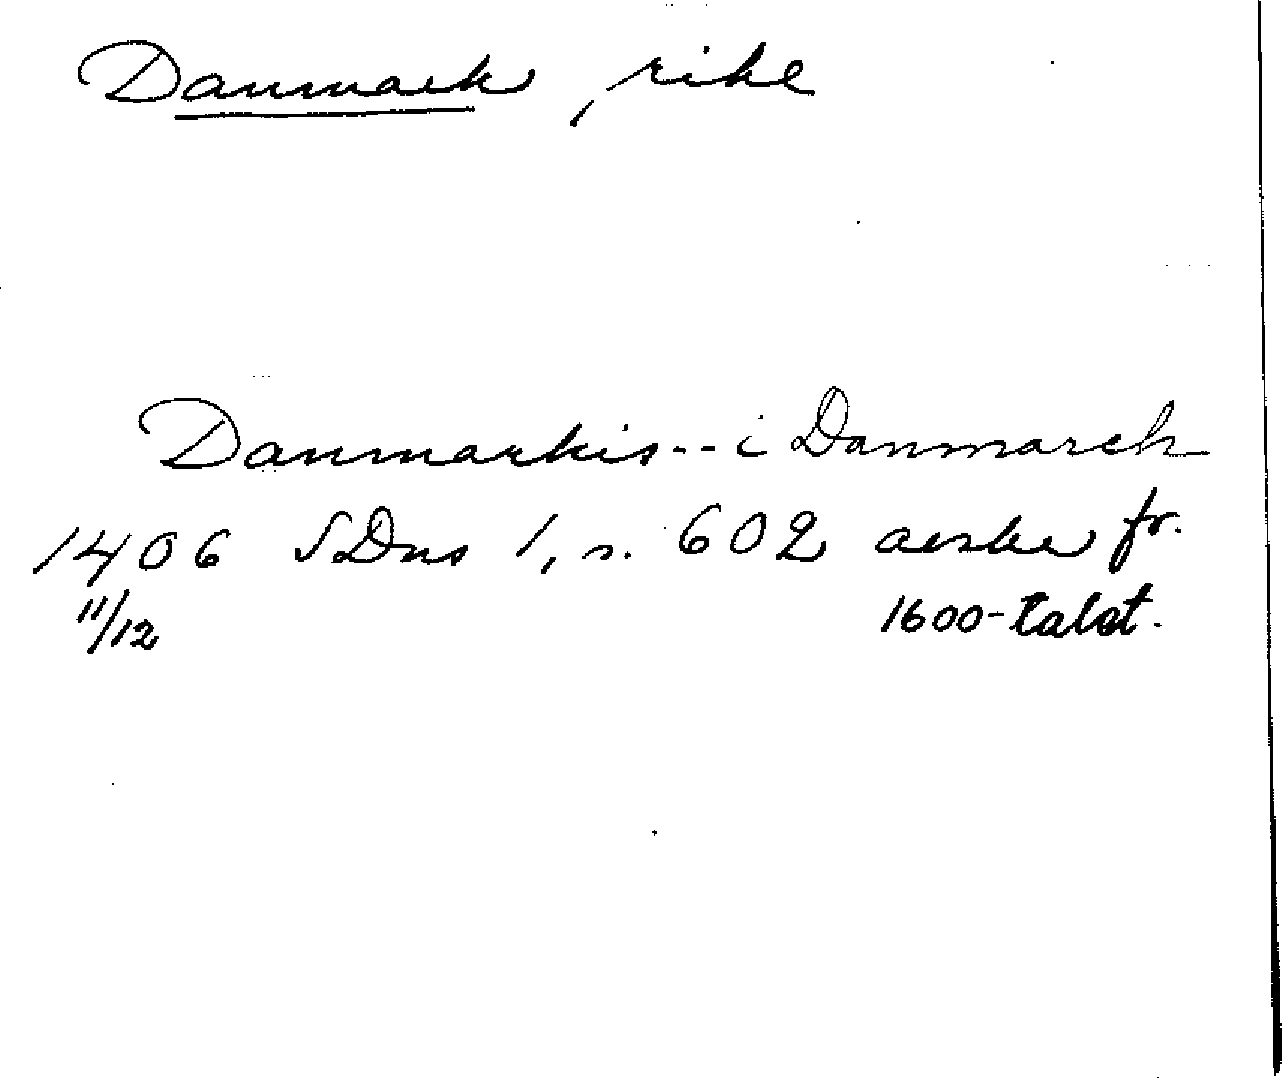 Danmark, rike
Danmarkis -- i Danmarch
1406 SDns 1, s. 602 avskr fr.
11/12 1600-talet.